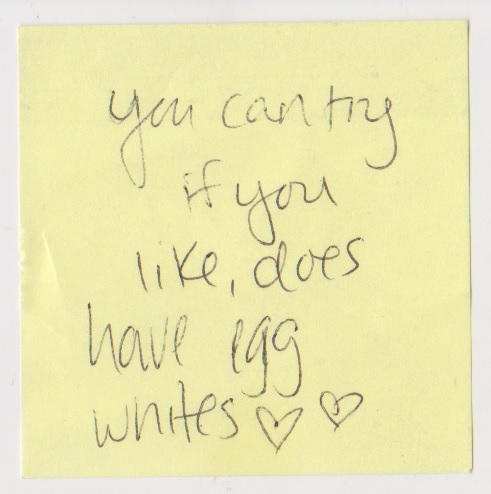 you can try
if you
like, does
have egg
whites ♡ ♡